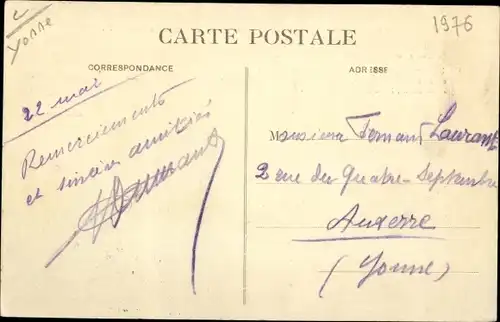 Yonne
1976
CARTE POSTALE
CORRESPONDANCE
ADRESSE
22 mai
Remerciements
et sincères amitiés
Monsieur Fernand Laurant
2 rue du Quatre-Septembre
Auxerre
(Yonne)